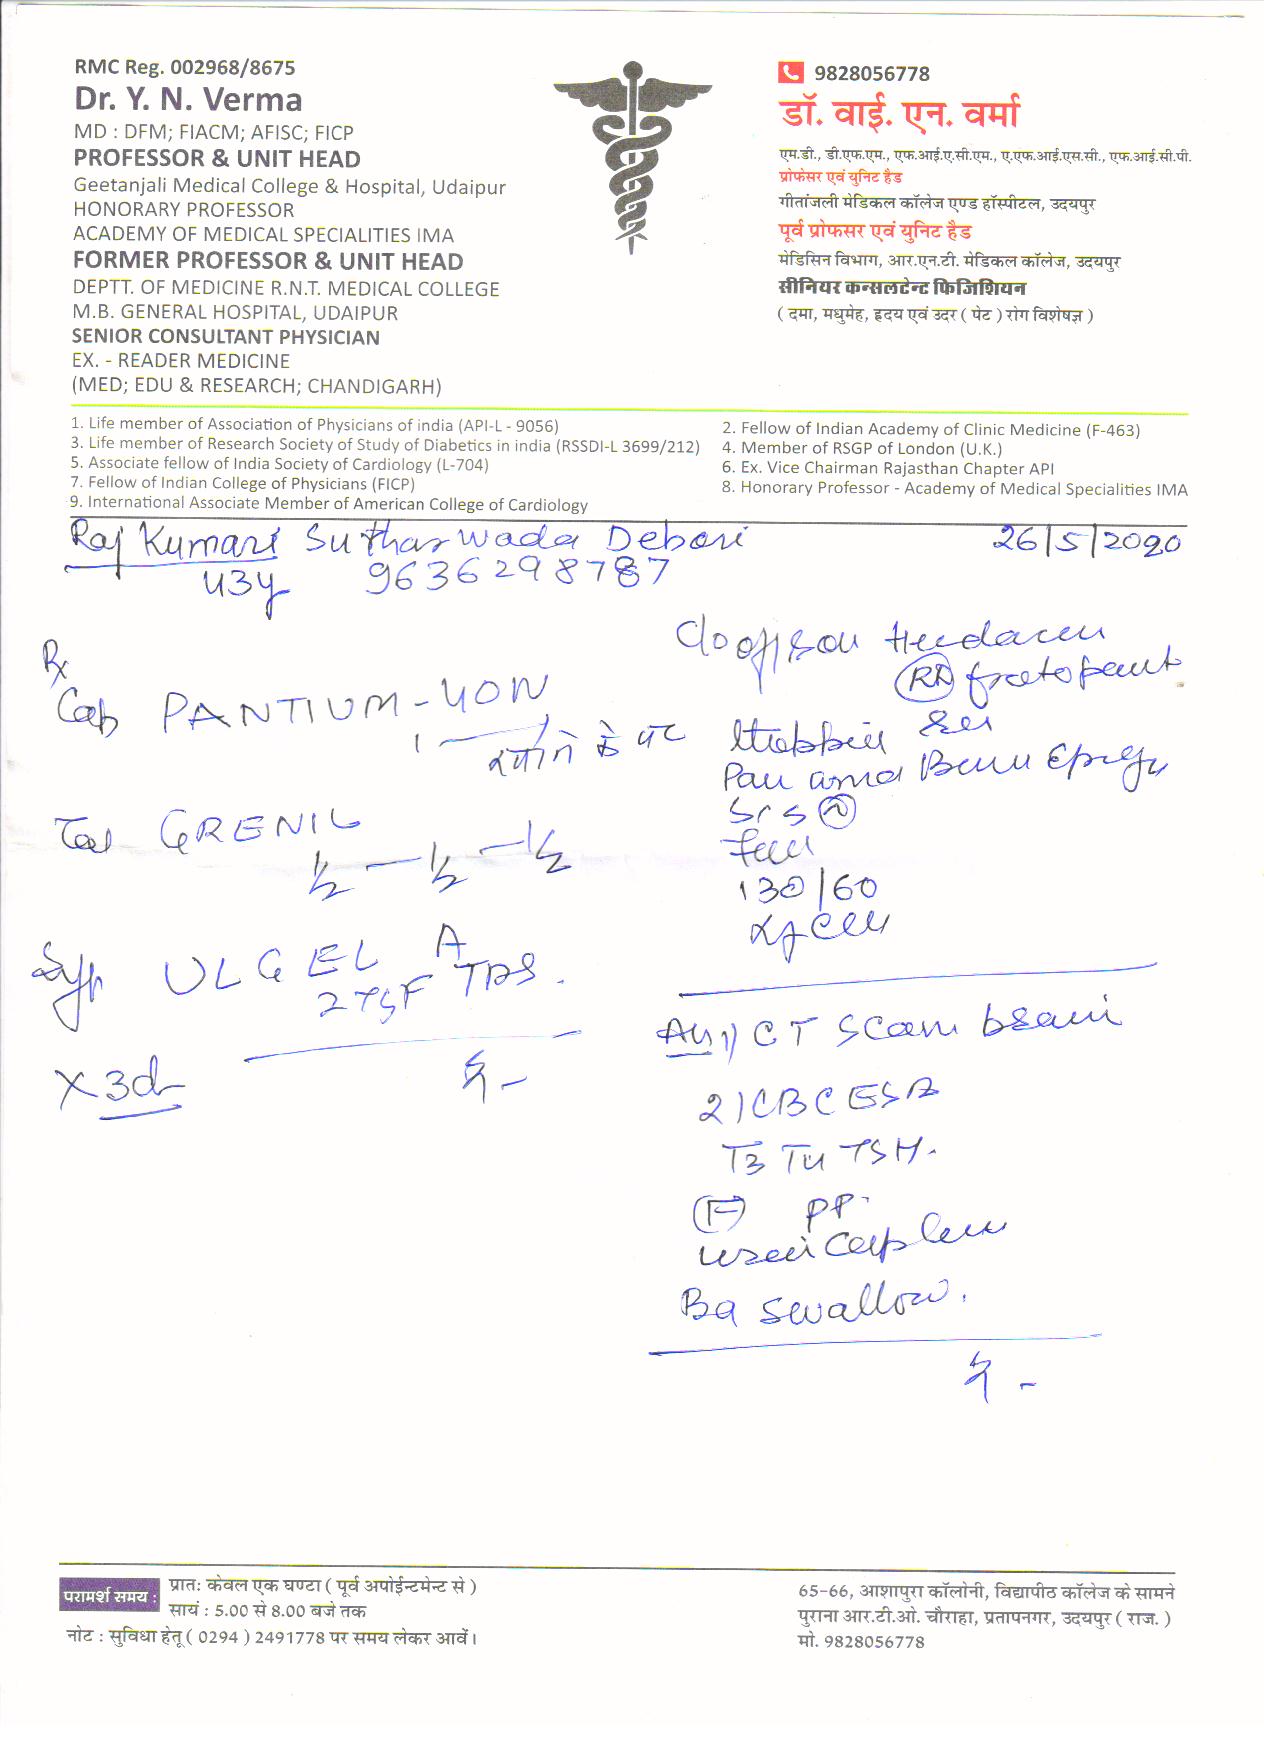 RMC Reg. 002968/8675
Dr. Y. N. Verma
MD : DFM; FIACM; AFISC; FICP
PROFESSOR & UNIT HEAD
Geetanjali Medical College & Hospital, Udaipur
HONORARY PROFESSOR
ACADEMY OF MEDICAL SPECIALITIES IMA
FORMER PROFESSOR & UNIT HEAD
DEPTT. OF MEDICINE R.N.T. MEDICAL COLLEGE
M.B. GENERAL HOSPITAL, UDAIPUR
SENIOR CONSULTANT PHYSICIAN
EX. - READER MEDICINE
(MED; EDU & RESEARCH; CHANDIGARH)
9828056778
डॉ. वाई. एन. वर्मा
एम.डी., डी.एफ.एम., एफ.आई.ए.सी.एम., ए.एफ.आई.एस.सी., एफ.आई.सी.पी.
प्रोफेसर एवं युनिट हैड
गीतांजली मेडिकल कॉलेज एण्ड हॉस्पीटल, उदयपुर
पूर्व प्रोफसर एवं युनिट हैड
मेडिसिन विभाग, आर.एन.टी. मेडिकल कॉलेज, उदयपुर
सीनियर कन्सलटेन्ट फिजिशियन
( दमा, मधुमेह, ह्रदय एवं उदर ( पेट ) रोग विशेषज्ञ )
1. Life member of Association of Physicians of india (API-L - 9056)
2. Fellow of Indian Academy of Clinic Medicine (F-463)
3. Life member of Research Society of Study of Diabetics in india (RSSDI-L 3699/212)
4. Member of RSGP of London (U.K.)
5. Associate fellow of India Society of Cardiology (L-704)
6. Ex. Vice Chairman Rajasthan Chapter API
7. Fellow of Indian College of Physicians (FICP)
8. Honorary Professor - Academy of Medical Specialities IMA
9. International Associate Member of American College of Cardiology
Raj Kumari Suthar wada Debari 26/5/2020
43y 9636298787
Rx
Cap PANTIUM-40N
1
के पर
Tab GRENIL
1/2 — 1/2 — 1/2
Syp ULGEL A
2 TSF TDS.
X 3d
130/60
1) CT Scan brain
2) CBC ESR
T3 T4 TSH.
(F) PP.
Ba swallow.
परामर्श समय :
प्रातः केवल एक घण्टा ( पूर्व अपोईन्टमेन्ट से )
सायं : 5.00 से 8.00 बजे तक
नोट : सुविधा हेतू ( 0294 ) 2491778 पर समय लेकर आवें।
65-66, आशापुरा कॉलोनी, विद्यापीठ कॉलेज के सामने
पुराना आर.टी.ओ. चौराहा, प्रतापनगर, उदयपुर ( राज. )
मो. 9828056778